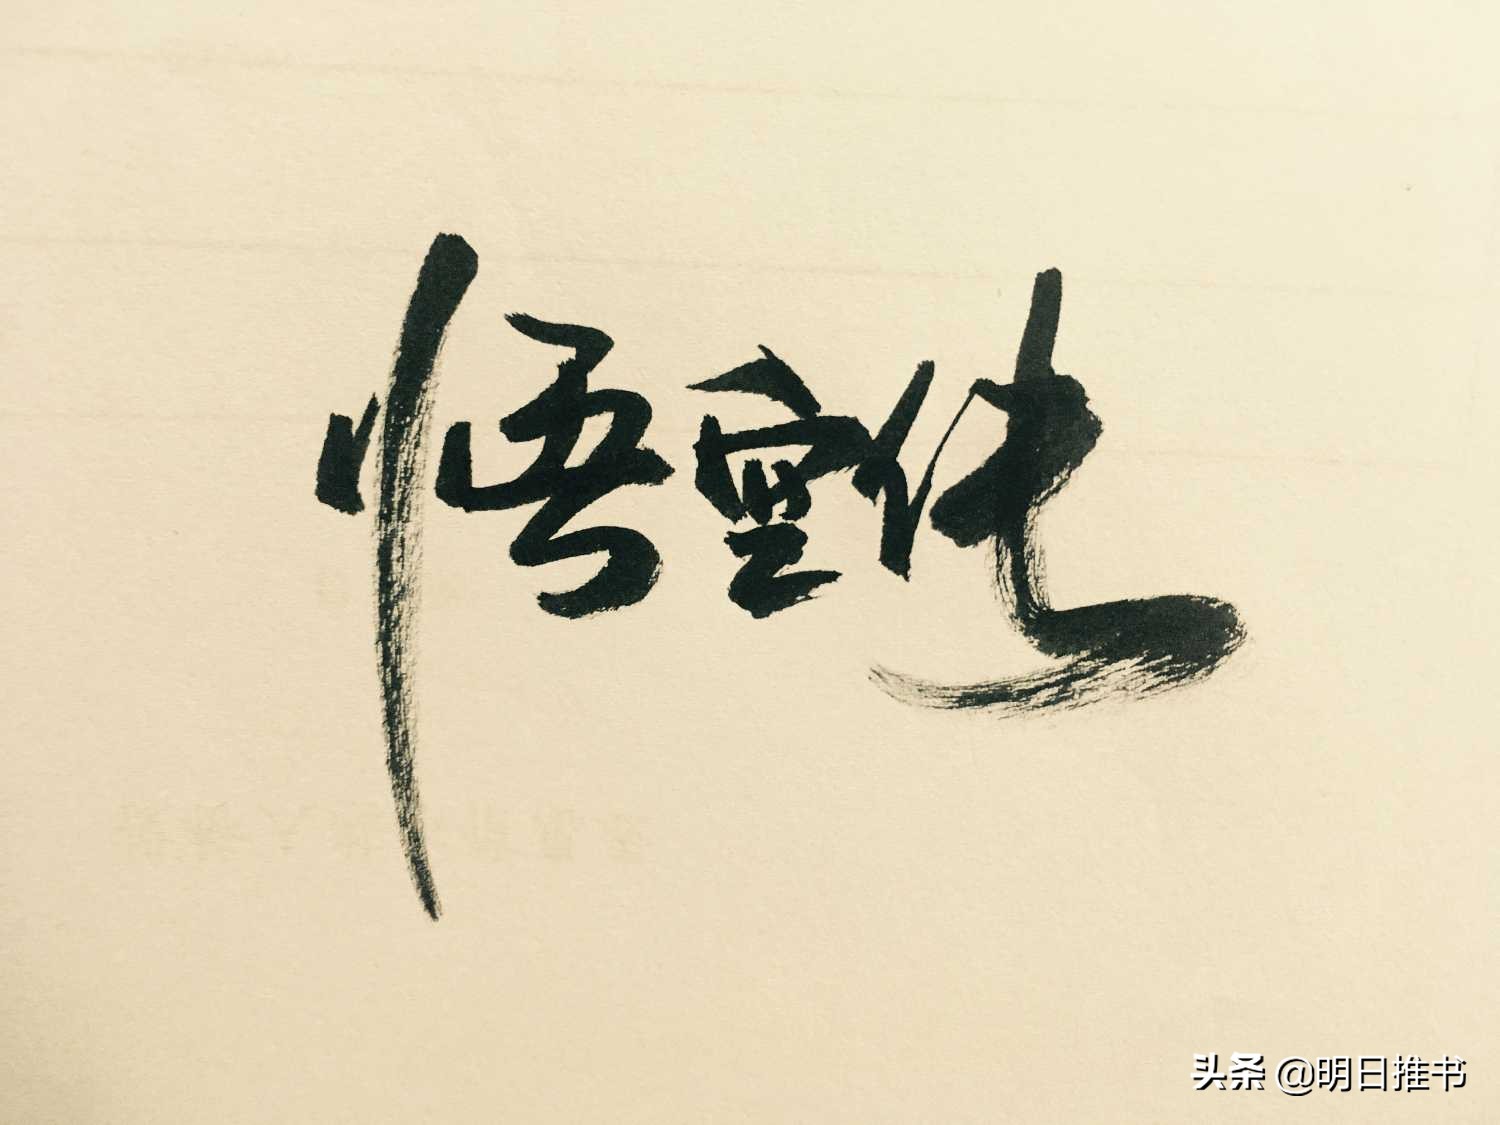 悟空传
头条 @明日推书